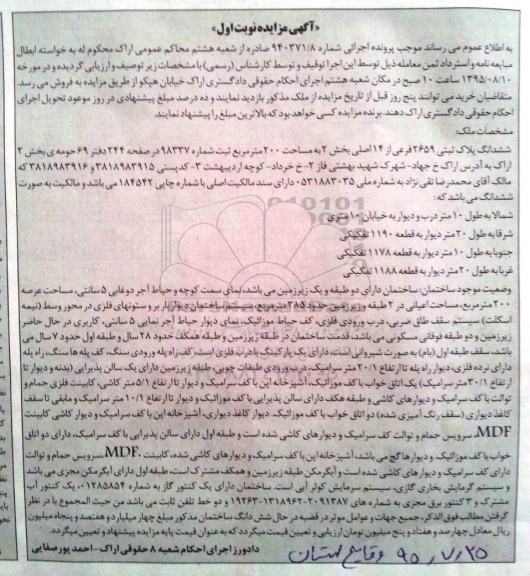 «آگهی مزایده نوبت اول»
به اطلاع عموم می رساند موجب پرونده اجرائی شماره ۹۴۰۳۷۱/۸ صادره از شعبه هشتم محاکم عمومی اراک محکوم له به خواسته ابطال
مبایعه نامه و استرداد ثمن معامله ذیل توسط این اجرا توقیف و توسط کارشناس (رسمی) با مشخصات زیر توصیف و ارزیابی گردیده و در مورخه
۱۳۹۵/۰۸/۱۰ ساعت ۱۰ صبح در مکان شعبه هشتم اجرای احکام حقوقی دادگستری اراک خیابان هپکو از طریق مزایده به فروش می رسد.
متقاضیان خرید می توانند پنج روز قبل از تاریخ مزایده از ملک مذکور بازدید نمایند و ده درصد مبلغ پیشنهادی در روز موعود تحویل اجرای
احکام حقوقی دادگستری اراک دهند. برنده مزایده کسی خواهد بود که بالاترین مبلغ را پیشنهاد نمایند.
مشخصات ملک:
ششدانگ پلاک ثبتی ۲۶۵۹ فرعی از ۱۴ اصلی بخش ۲ به مساحت ۲۰۰ مترمربع ثبت شماره ۹۸۳۳۷ در صفحه ۲۴۴ دفتر ۶۹ حومه ی بخش ۲
اراک به آدرس اراک خ جهاد- شهرک شهید بهشتی فاز ۲- خ خرداد- کوچه اردیبهشت ۳- کدپستی ۳۸۱۸۹۸۳۹۱۵ و ۳۸۱۸۹۸۳۹۱۶ که
مالک آقای محمدرضا تقی نژاد به شماره ملی ۰۵۳۱۸۸۳۰۳۵ دارای سند مالکیت اصلی با شماره چاپی ۱۸۴۵۴۲ می باشد و مالکیت به صورت
ششدانگ می باشد که:
شمالا به طول ۱۰ متر درب و دیوار به خیابان ۱۰ متری
شرقا به طول ۲۰ متر دیوار به قطعه ۱۱۹۰ تفکیکی
جنوبا به طول ۱۰ متر دیوار به قطعه ۱۱۷۸ تفکیکی
غربا به طول ۲۰ متر دیوار به قطعه ۱۱۸۸ تفکیکی
وضعیت موجود ساختمان: ساختمان دارای دو طبقه و یک زیرزمین می باشد، نمای سمت کوچه و حیاط آجر دوغابی ۵ سانتی، مساحت عرصه
۲۰۰ مترمربع، مساحت اعیانی در ۲ طبقه و زیرزمین حدود ۲۸۵ مترمربع، سیستم ساختمان دیوار باربر و ستونهای فلزی در محور وسط (نیمه
اسکلت) سیستم سقف طاق ضربی، درب ورودی فلزی، کف حیاط موزائیک، نمای دیوار حیاط آجر نمایی ۵ سانتی، کاربری در حال حاضر
زیرزمین و دو طبقه فوقانی مسکونی می باشد، قدمت ساختمان در طبقه زیرزمین و طبقه همکف حدود ۲۸ سال و طبقه اول حدود ۷ سال می
باشد، سقف طبقه اول (بام) به صورت شیروانی است، دارای یک پارکینگ با درب فلزی است، کف راه پله ورودی سنگ، کف پله ها سنگ، راه پله
دارای نرده فلزی، دیوار راه پله تا ارتفاع ۲۰/۱ متر سرامیک، درب ورودی طبقات چوبی، طبقه زیرزمین دارای یک سالن پذیرایی (بدنه و دیوار تا
ارتفاع ۳۰/۱ متر سرامیک) یک اتاق خواب با کف موزائیک، آشپزخانه اپن با کف سرامیک و دیوار تا ارتفاع ۵/۱ متر کاشی، کابینت فلزی حمام و
توالت با کف سرامیک و دیوارهای کاشی و طبقه هکف دارای سالن پذیرایی با کف سرامیک و دیوار تا ارتفاع ۱۰/۱ متر سرامیک و مابقی تا سقف
کاغذ دیواری (سقف رنگ آمیزی شده) دو اتاق خواب با کف موزائیک، دیوار کاغذ دیواری، آشپزخانه اپن با کف سرامیک و دیوار کاشی کابینت
MDF، سرویس حمام و توالت کف سرامیک و دیوارهای کاشی شده است و طبقه اول دارای سالن پذیرایی با کف سرامیک، دارای دو اتاق
خواب با کف موزائیک و دیوارها گچ می باشد، آشپزخانه اپن با کف سرامیک و دیوارهای کاشی شده، کابینت MDF، سرویس حمام و توالت
دارای کف سرامیک و دیوارهای کاشی شده است و آبگرمکن طبقه زیرزمین و همکف مشترک است، طبقه اول دارای آبگرمکن مجزی می باشد
و سیستم گرمایش بخاری گازی، سیستم سرمایش کولر آبی است. ساختمان دارای یک کنتور گاز به شماره ۰۰۱۲۸۵۸۵۴، یک کنتور آب
مشترک و ۳ کنتور برق مجزی به شماره های ۲۰۹۱۳۸۷-۱۳۱۸۹۶۲-۱۹۲۶۳ و دو خط تلفن ثابت می باشد من حیث المجموع با در نظر
گرفتن مطالب فوق الذکر، جمیع جهات و عوامل موثر در قضیه در حال شش دانگ ساختمان مذکور مبلغ چهار میلیارد و هفتصد و پنجاه میلیون
ریال معادل چهارصد و هفتاد و پنج میلیون تومان ارزیابی و تعیین قیمت میگردد که به عنوان قیمت پایه مزایده پیشنهاد و تعیین میگردد.
دادورز اجرای احکام شعبه ۸ حقوقی اراک- احمد پورصفایی
۹۵/۷/۲۵